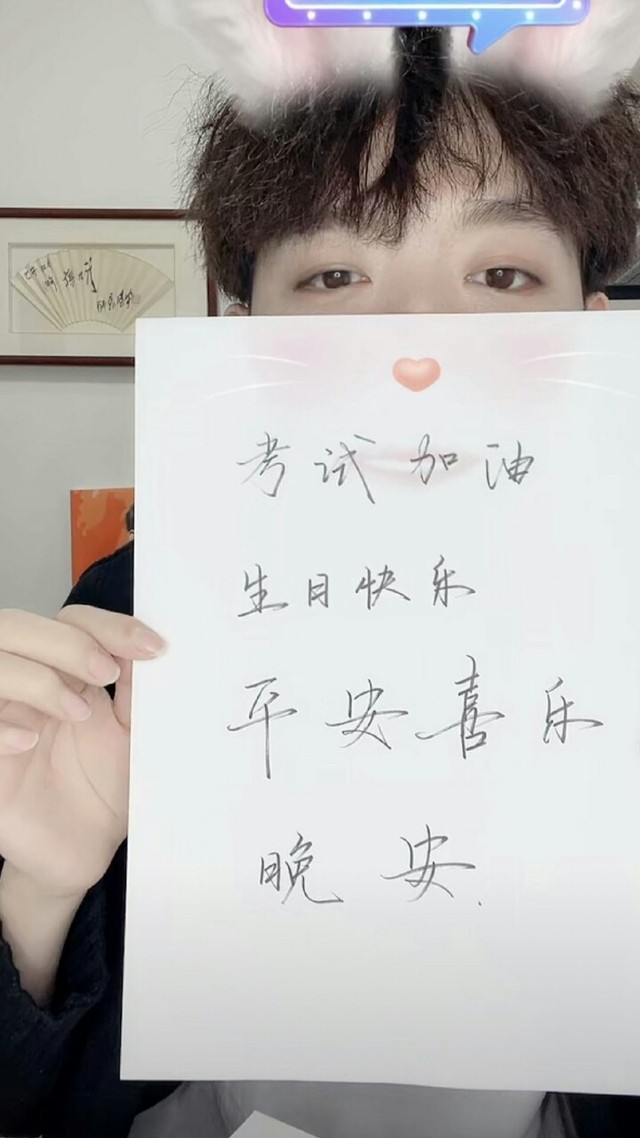 考试加油
生日快乐
平安喜乐
晚安.